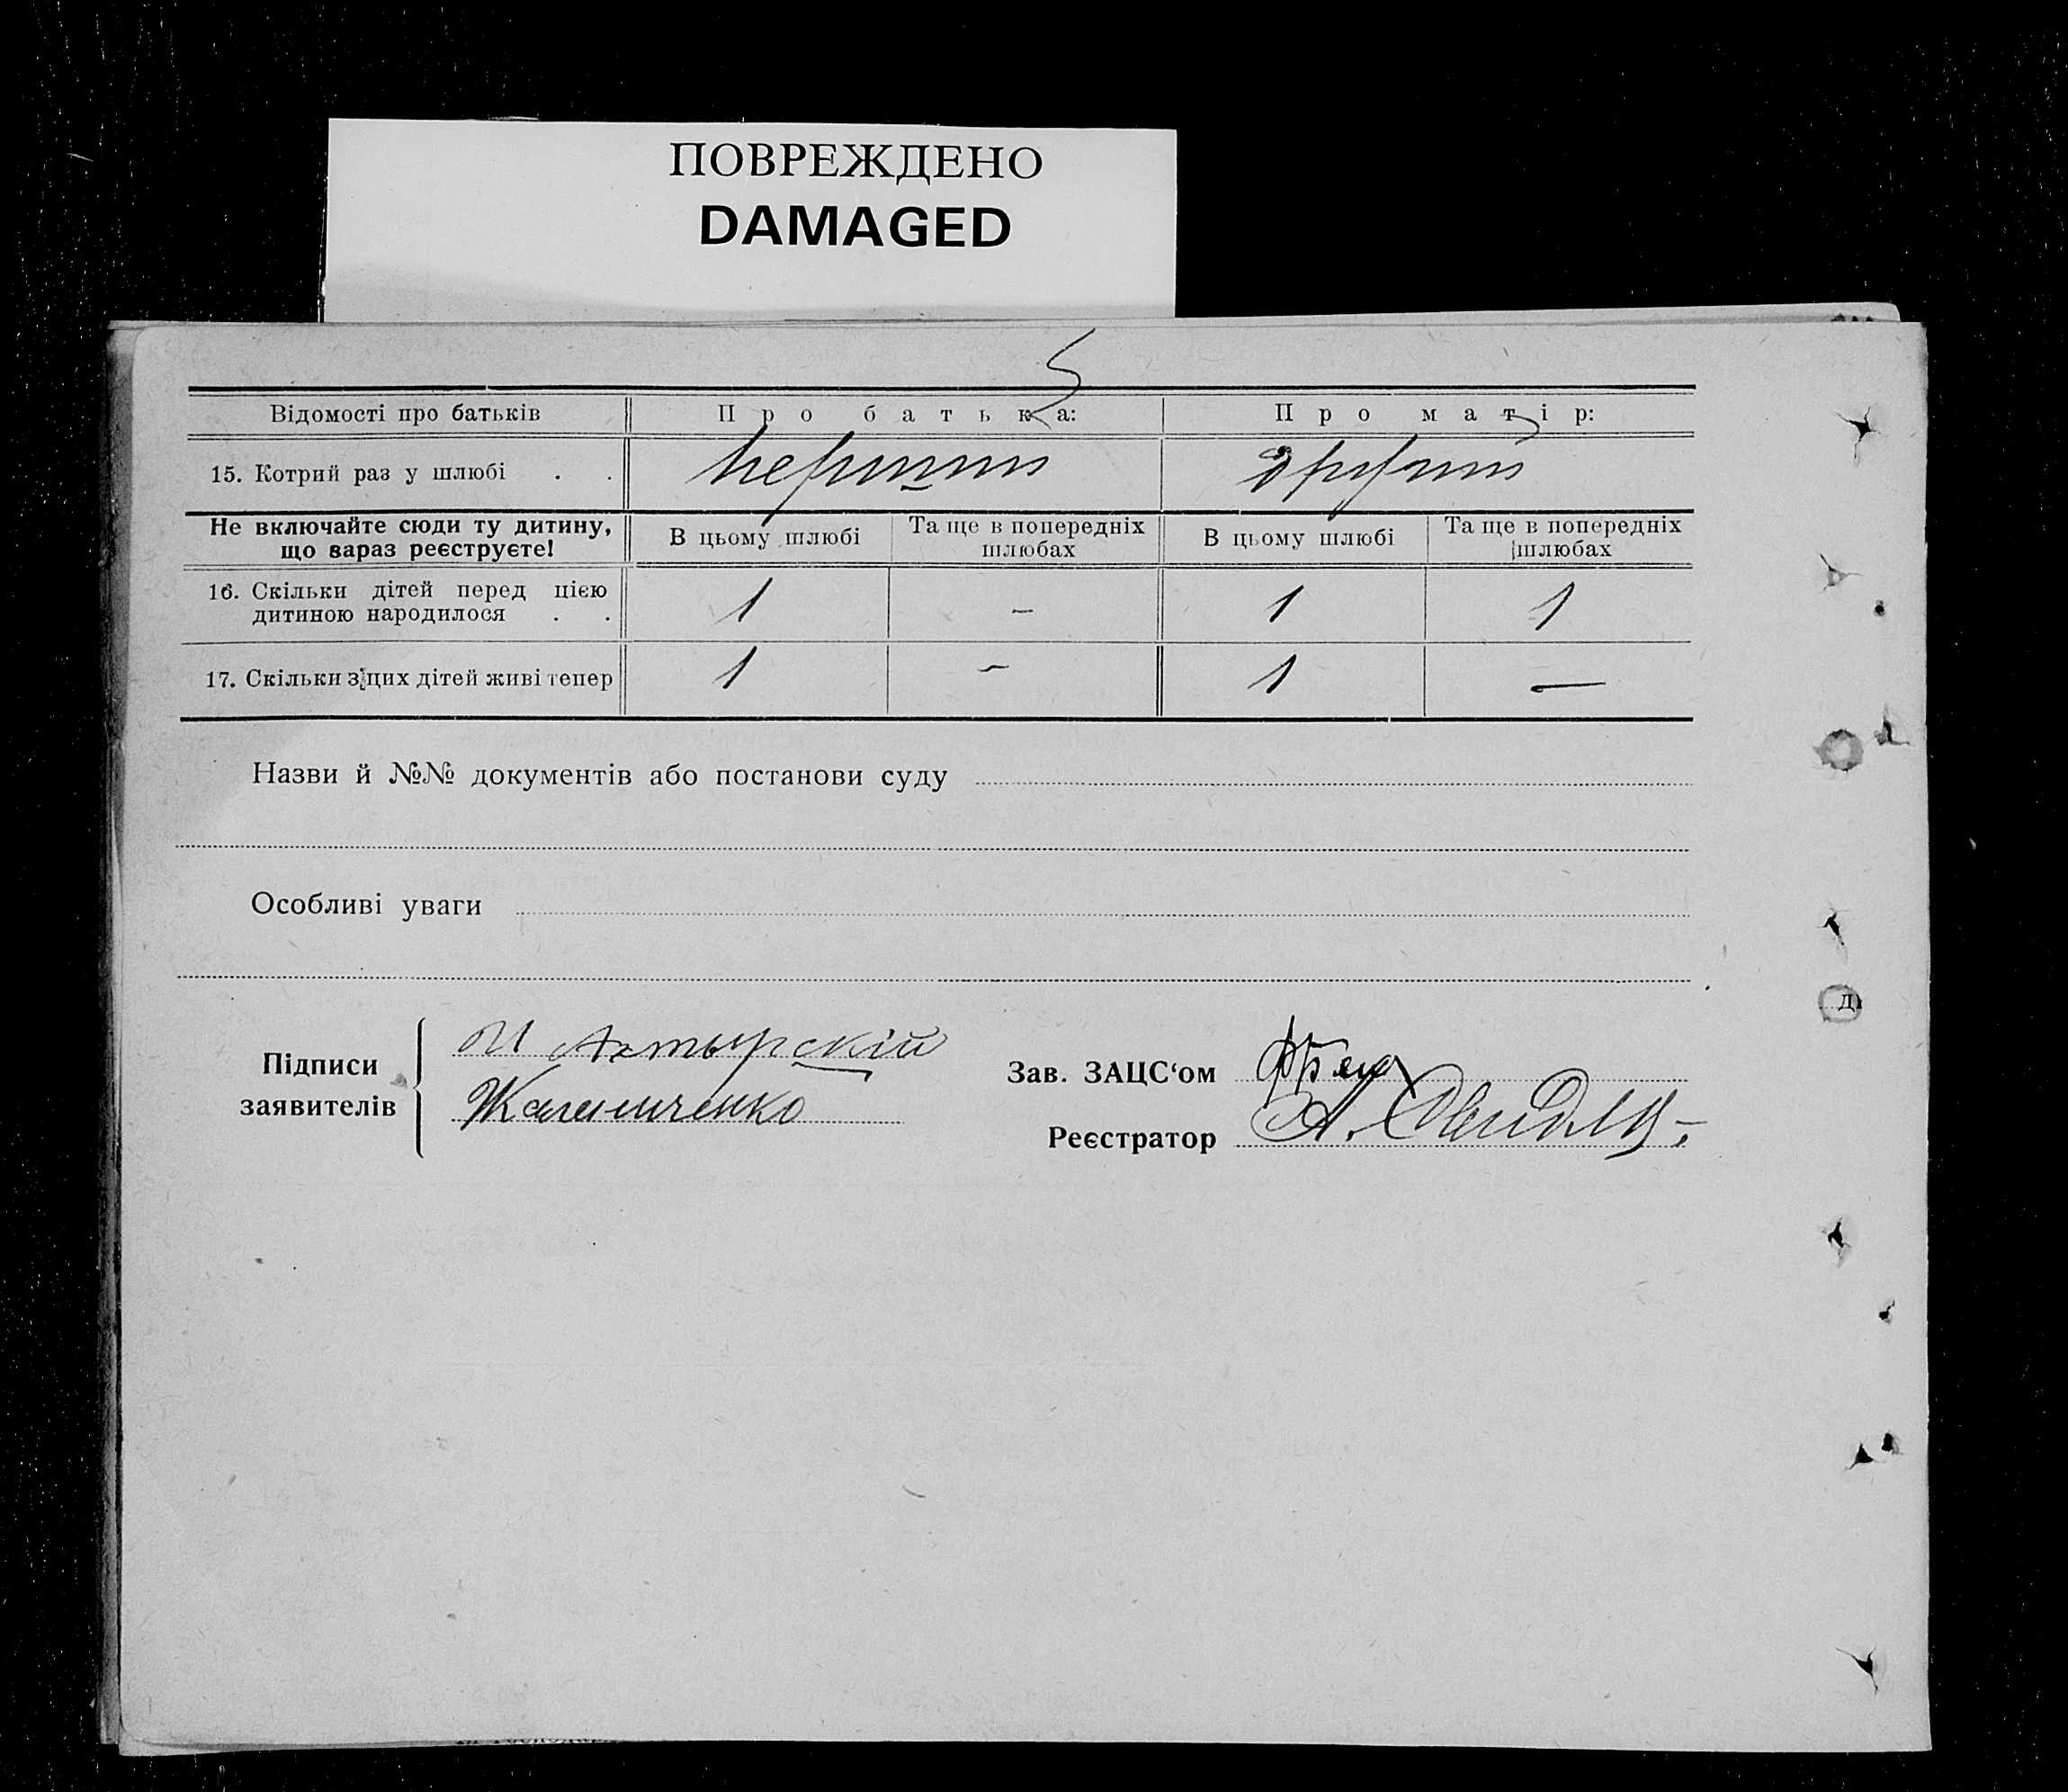 ПОВРЕЖДЕНО
DAMAGED
Відомості про батьків Про батька: Про матір:
15. Котрий раз у шлюбі . . перший другий
Не включайте сюди ту дитину, що вараз реєструєте! В цьому шлюбі Та ще в попередніх шлюбах В цьому шлюбі Та ще в попередніх шлюбах
16. Скільки дітей перед цією дитиною народилося . . 1 – 1 1
17. Скільки з цих дітей живі тепер 1 – 1 —
Назви й №№ документів або постанови суду
Особливі уваги
Підписи заявителів
И Ахтырскій
Калиниченко
Зав. ЗАЦС‘ом
Реєстратор А.